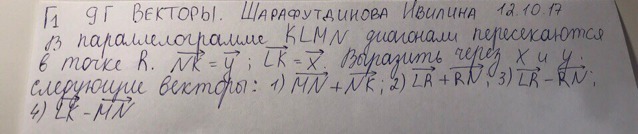 Г1 9Г ВЕКТОРЫ. ШАРАФУТДИНОВА ИВИЛИНА 12.10.17
В параллелограмме KLMN диагонали пересекаются
в точке R. NK = y ; LK = x. Выразить через x и y
следующие векторы: 1) MN + NK; 2) LR + RN; 3) LR − RN;
4) LK − MN